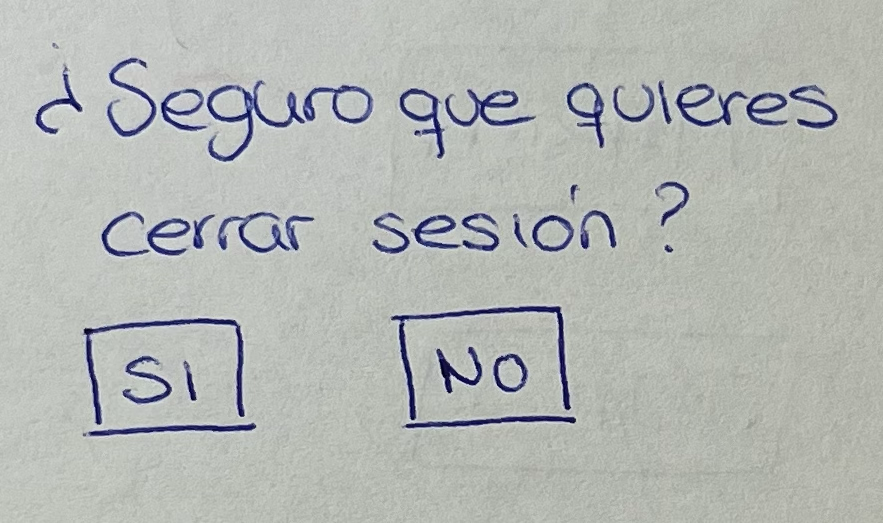 ¿Seguro que quieres
cerrar sesión?
SI NO